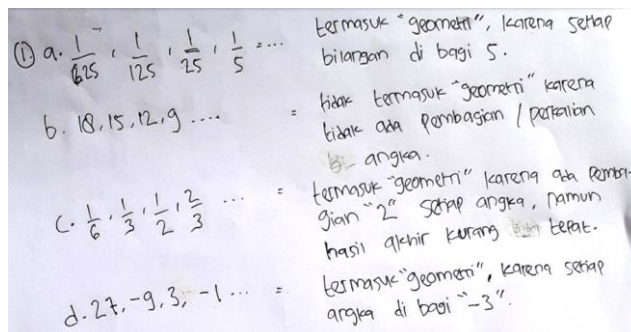 ① a. 1/625, 1/125, 1/25, 1/5 = .... termasuk "geometri", karena setiap
bilangan di bagi 5.
b. 18, 15, 12, 9 .... = tidak termasuk "geometri" karena
tidak ada pembagian / perkalian
angka.
c. 1/6, 1/3, 1/2, 2/3 ... = termasuk "geometri" karena ada pembagi-
gian "2" setiap angka, namun
hasil akhir kurang tepat.
d. 27, -9, 3, -1 ... = termasuk "geometri", karena setiap
angka di bagi "-3".